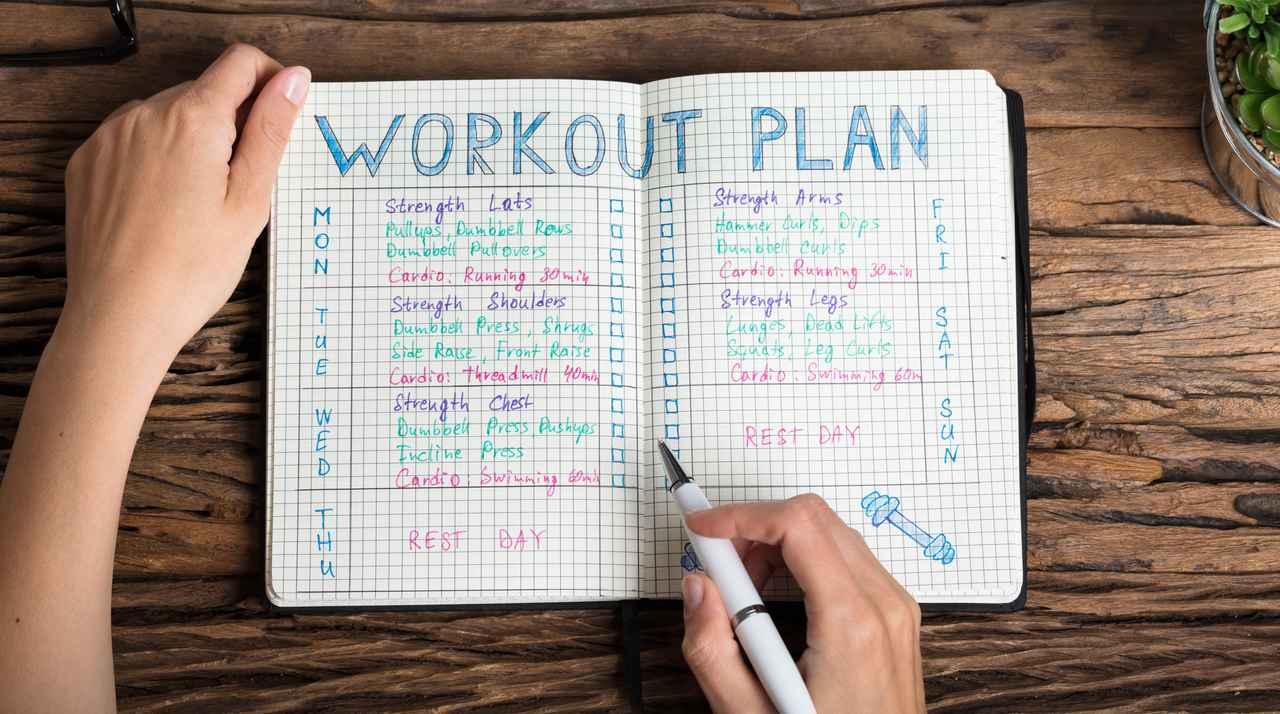 WORKOUT PLAN
MON
Strength Lats
Pullups, Dumbbell Rows
Dumbbell Pullovers
Cardio: Running 30min
TUE
Strength Shoulders
Dumbbell Press, Shrugs
Side Raise, Front Raise
Cardio: Threadmill 40min
WED
Strength Chest
Dumbbell Press, Pushups
Incline Press
Cardio: Swimming 60min
THU
REST DAY
Strength Arms
FRI
Hammer Curls, Dips
Dumbbell Curls
Cardio: Running 30min
Strength Legs
SAT
Lunges, Dead Lifts
Squats, Leg Curls
Cardio: Swimming 60m
SUN
REST DAY